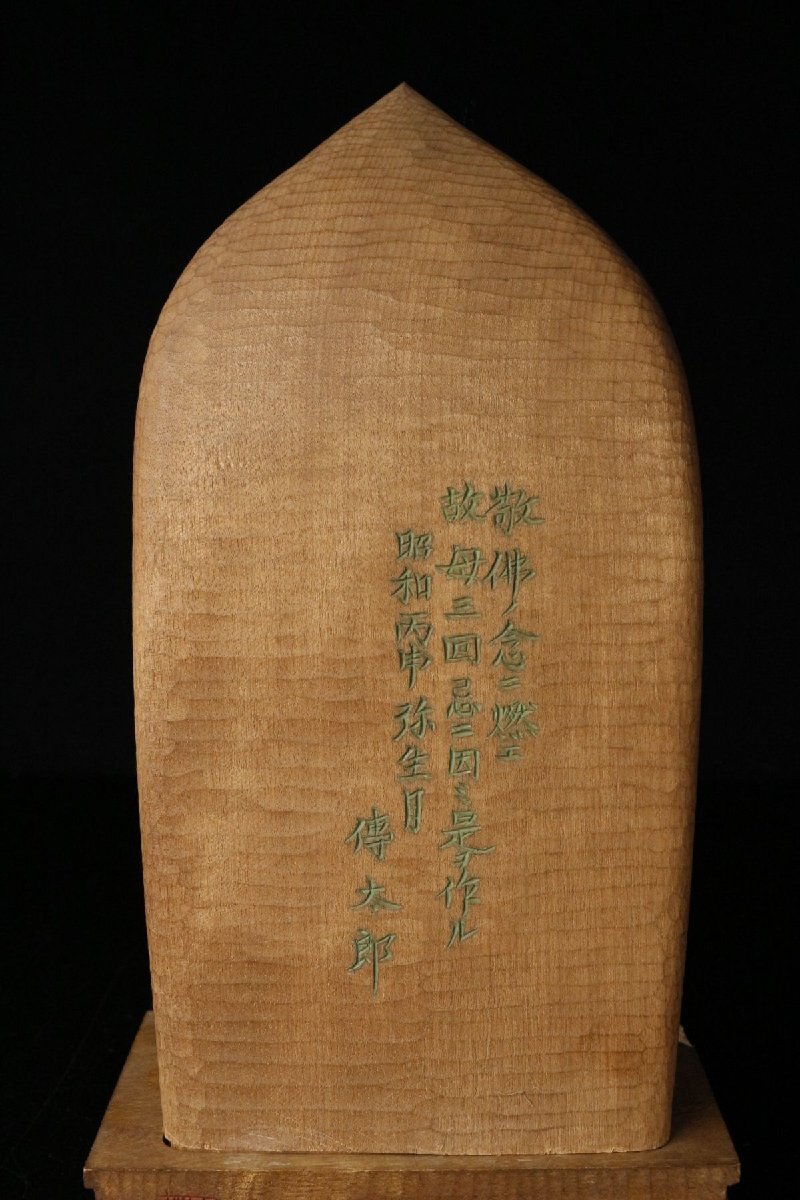 敬佛ノ念ニ燃エ
故母三回忌ニ因ミ是ヲ作ル
昭和丙申弥生月
傳太郎